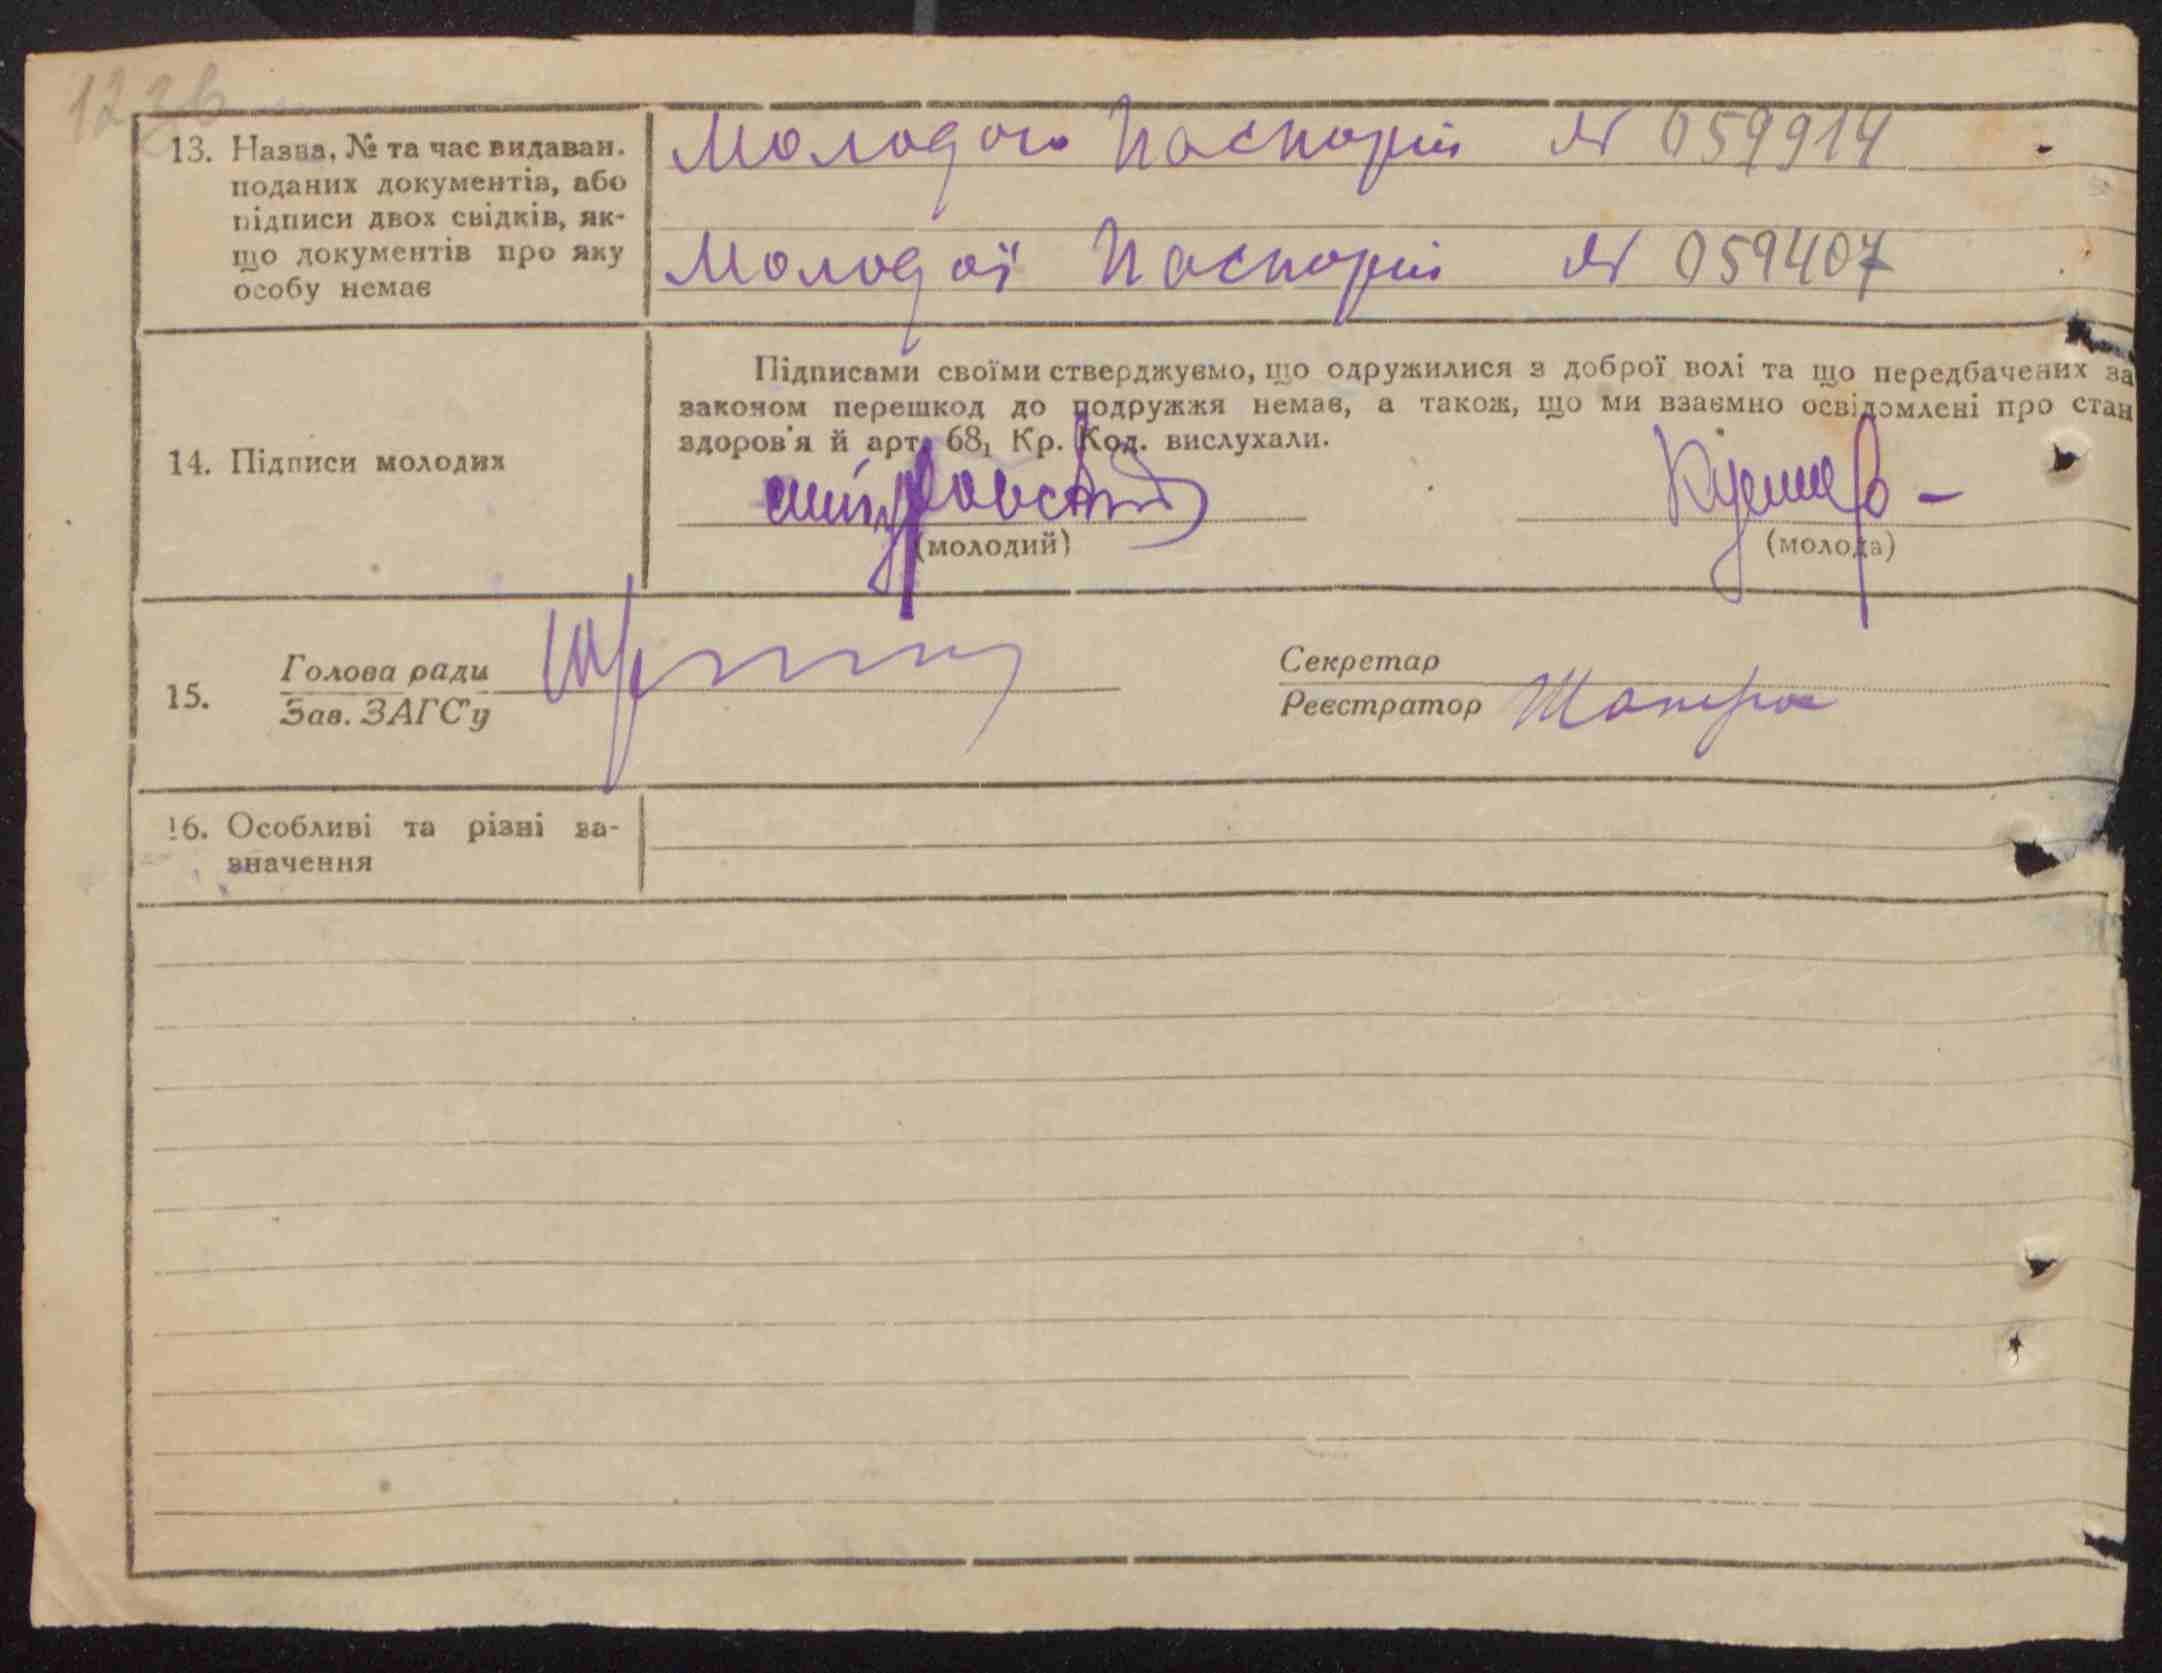 13. Назва, № та час видаван.
поданих документів, або
підписи двох свідків, як-
що документів про яку
особу немає
Молодого Паспорт № 059914
Молодої Паспорт № 059407
14. Підписи молодих
Підписами своїми стверджуємо, що одружилися з доброї волі та що передбачених за
законом перешкод до подружжя немає, а також, що ми взаємно освідомлені про стан
здоров'я й арт. 68₁ Кр. Код. вислухали.
(молодий)
(молода)
15.
Голова ради
Зав. ЗАГС'у
Секретар
Реєстратор
16. Особливі та різні за-
значення